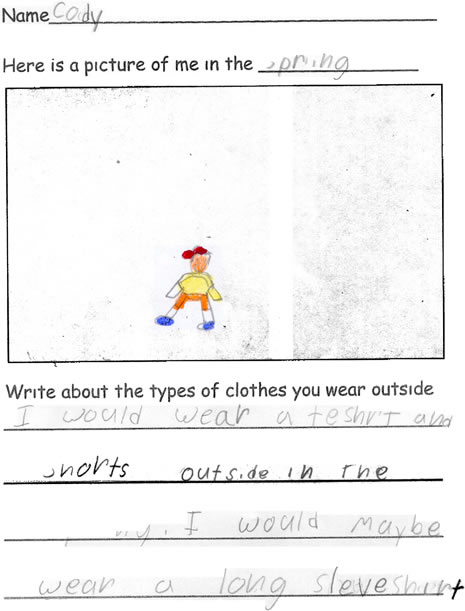 Name Cody
Here is a picture of me in the spring
Write about the types of clothes you wear outside
I would wear a teshirt and
shorts outside in the
I would maybe
wear a long sleve shirt